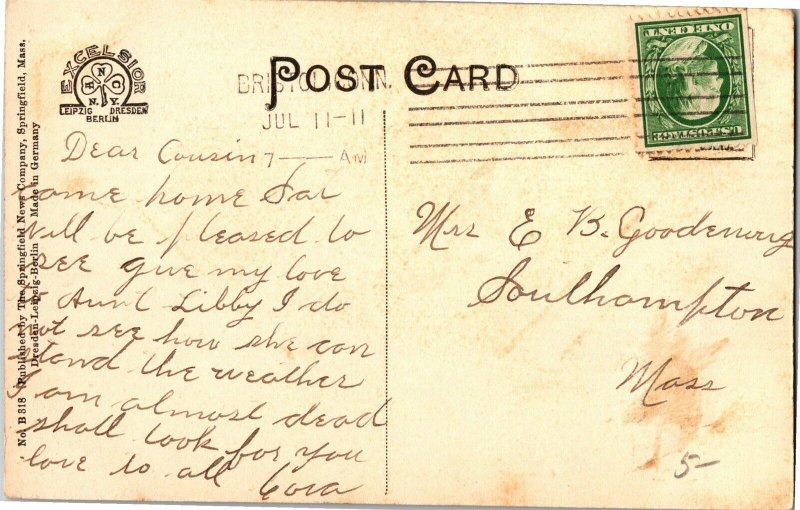 No. B 318 Published by The Springfield News Company, Springfield, Mass.
Dresden-Leipzig-Berlin Made in Germany
EXCELSIOR
A N C
N.Y.
LEIPZIG DRESDEN
BERLIN
POST CARD
BRISTOL CONN.
JUL 11-11
7 — AM
U.S. POSTAGE
ONE CENT
Dear Cousin
come home Sat
will be pleased to
see give my love
to Aunt Libby I do
not see how she can
stand the weather
I am almost dead
shall look for you
love to all Cora
Mrs E B. Goodenwg
Southampton
Mass
5-